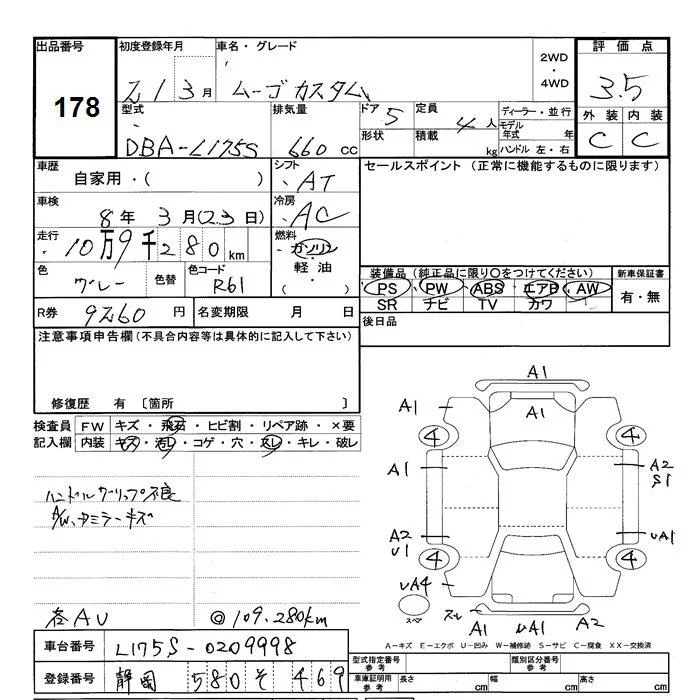 出品番号
178
初度登録年月
21年3月
車名・グレード
ムーヴ カスタム
2WD
・
4WD
評価点
3.5
外装 内装
C C
型式
DBA-L175S
排気量
660 cc
ドア 5
形状
定員 4 人
積載 kg
ディーラー・並行
モデル年式 年
ハンドル 左・右
車歴
自家用・( )
シフト
AT
セールスポイント (正常に機能するものに限ります)
車検
8年3月(23日)
冷房
AC
走行
10万9千280km
燃料
ガソリン
・
軽油
( )
色
グレー
色替
色コード
R61
装備品 (純正品に限り○をつけてください)
PS PW ABS エアB AW
SR ナビ TV カワ
新車保証書
有・無
R券 9760 円
名変期限 月 日
後日品
注意事項申告欄(不具合内容等は具体的に記入して下さい)
修復歴 有 〔箇所 〕
検査員記入欄
FW キズ・飛石・ヒビ割・リペア跡・×要
内装 キズ・汚レ・コゲ・穴・スレ・キレ・破レ
ハンドルグリップ不良
A/W、ヤミラーキズ
各AU ◎109.280km
A1
A1 A1
4 4
A1 A2
S1
A2 UA1
U1
4 4
UA4
スペア
スレ
A1 UA1 A2
A-キズ E-エクボ U-凹み W-補修跡 S-サビ C-腐食 XX-交換済
車台番号 L175S-0209998
登録番号 静岡 580 そ 469
型式指定番号 参考
類別区分番号 参考
車庫証明用 参考
長さ cm
幅 cm
高さ cm